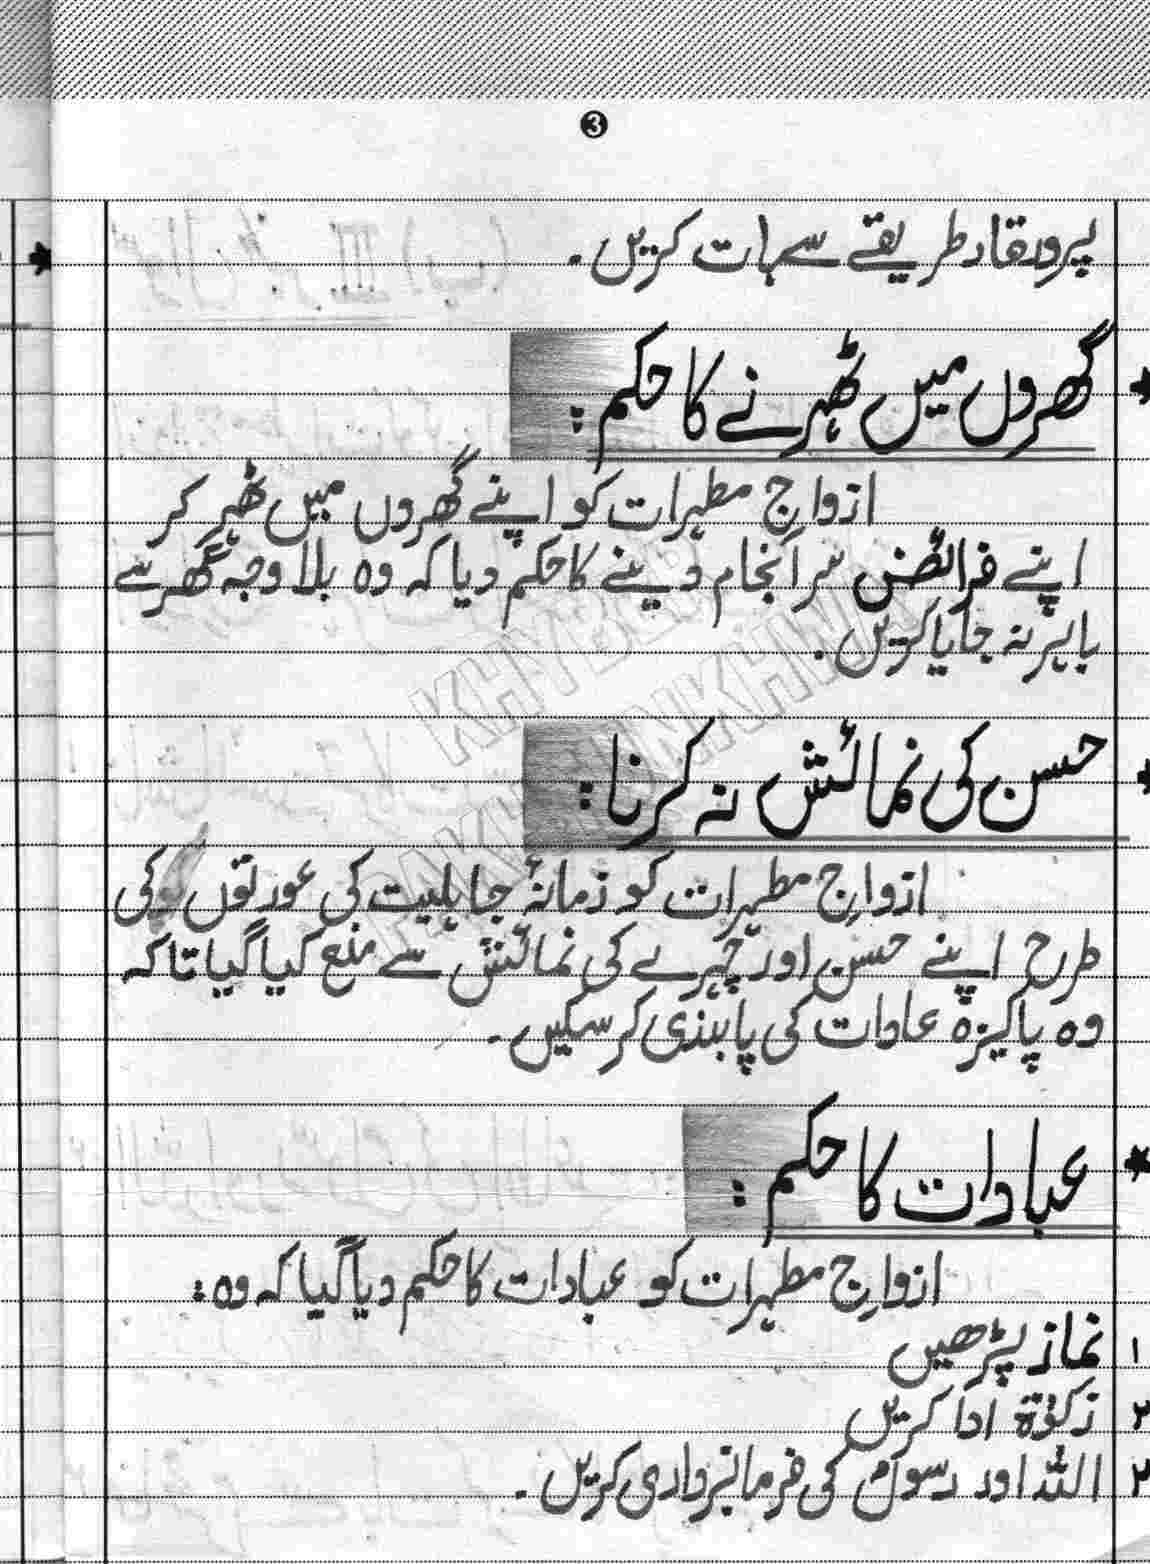 3
پروقار طریقے سے بات کریں۔
★ گھروں میں ٹھہرنے کا حکم :
ازواجِ مطہرات کو اپنے گھروں میں ٹھہر کر
اپنے فرائض سرانجام دینے کا حکم دیا کہ وہ بلا وجہ گھر سے
باہر نہ جایا کریں۔
★ حسن کی نمائش نہ کرنا :
ازواجِ مطہرات کو زمانۂ جاہلیت کی عورتوں کی
طرح اپنے حسن اور چہرے کی نمائش سے منع کیا گیا تاکہ
وہ پاکیزہ عادات کی پابندی کر سکیں۔
★ عبادات کا حکم :
ازواجِ مطہرات کو عبادات کا حکم دیا گیا کہ وہ :
۱ نماز پڑھیں
۲ زکوٰۃ ادا کریں
۳ اللہ اور رسولؐ کی فرمانبرداری کریں۔
KHYBER
PAKHTUNKHWA